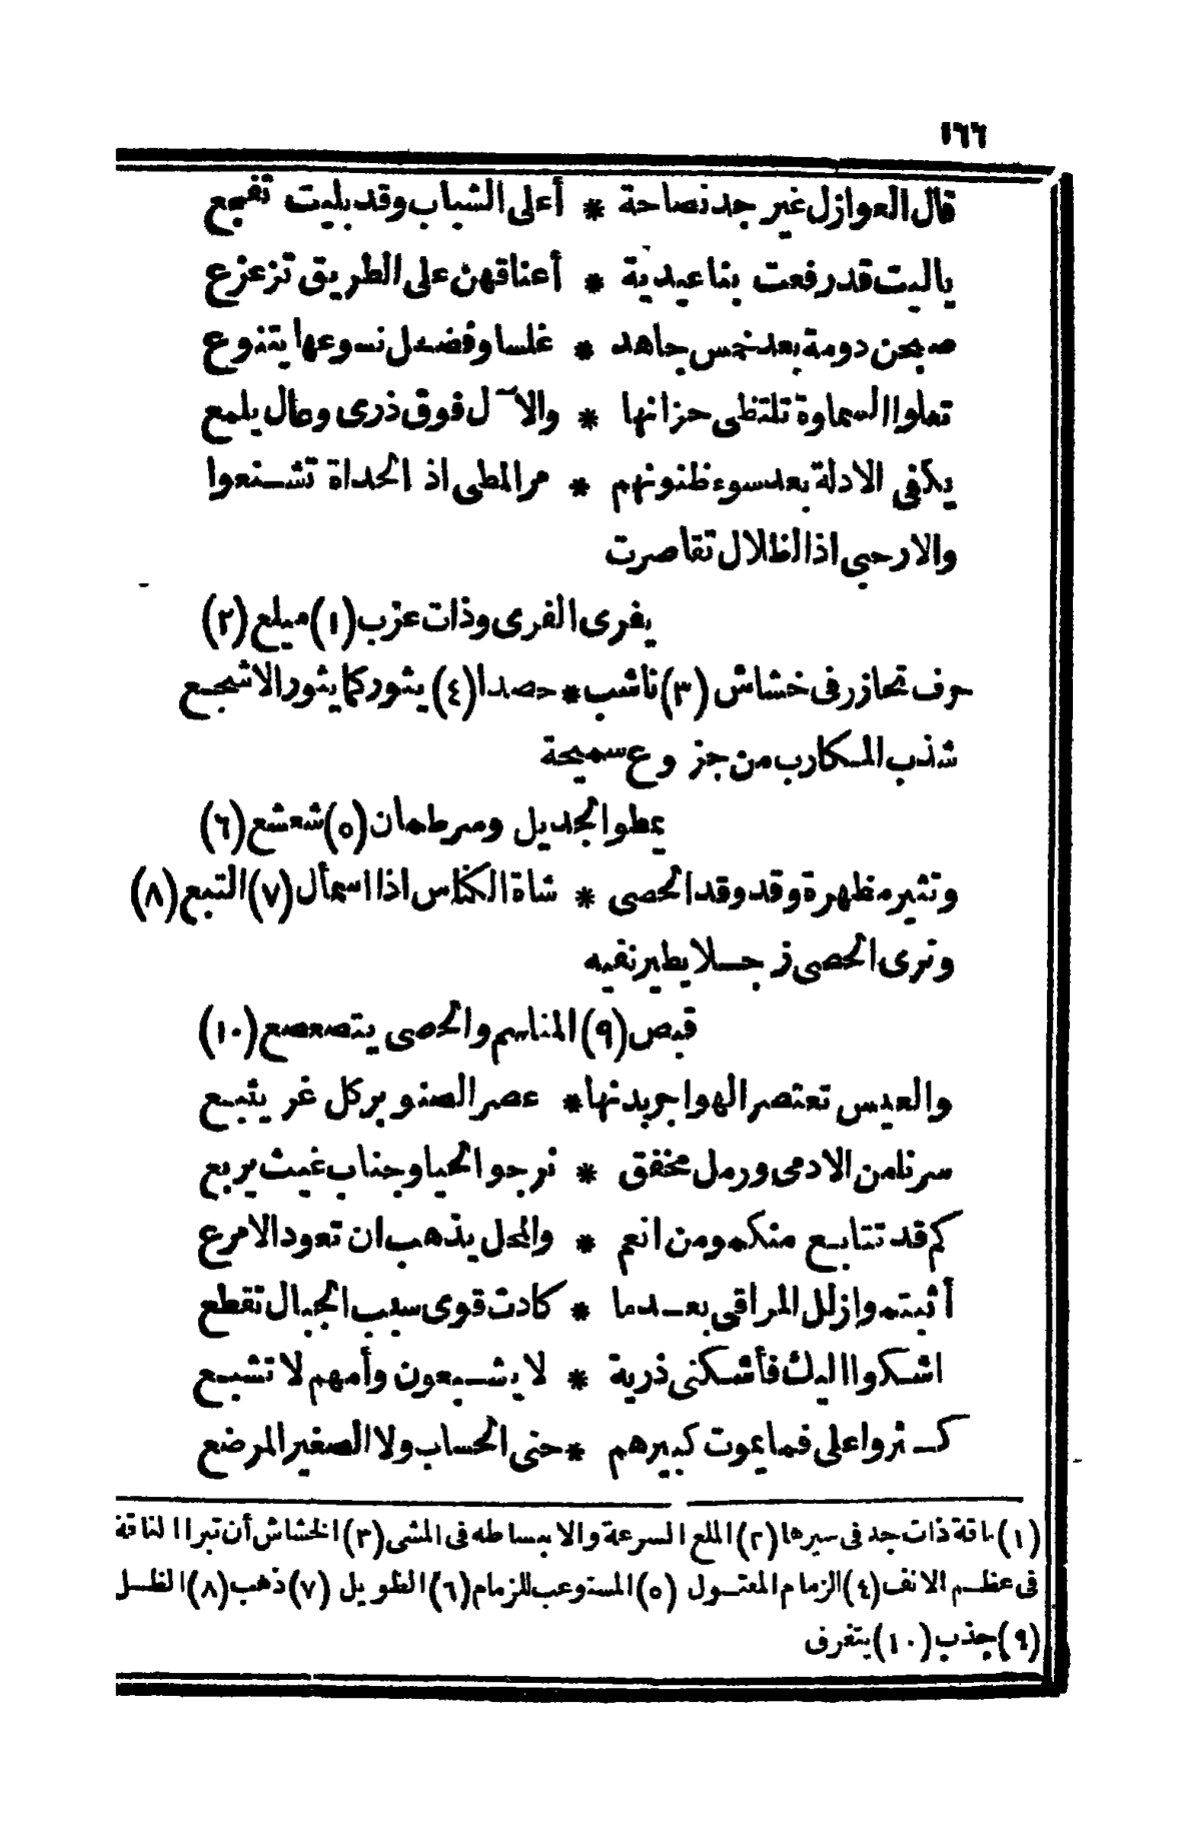 ١٦٦
قال العواذل غير جد نصاحة * أعلى الشباب وقد بليت تفجع
ياليت قد رفعت بنا عيدية * أعناقهن على الطريق تزعزع
صبحن دومة بعد خمس جاهد * غلسا وفضل نسوعها يتنوع
تعلوا السماوة تلتظى حزانها * والآل فوق ذرى وعال يلمع
يكفى الادلة بعد سوء ظنونهم * مر المطى اذ الحداة تشنعوا
والارحبى اذا الظلال تقاصرت
يفرى الفرى وذات عزب (١) ميلع (٢)
حرف تحاذر فى خشاش (٣) ناشب * حصدا (٤) يثور كما يثور الاشجع
شذب المكارب من جزوع سميحة
يمطو الجديل ومرطمان (٥) شعشع (٦)
وتثير مظهرة وقد وقد الحصى * شاة الكناس اذا اسمأل (٧) التبع (٨)
وترى الحصى زجلا يطير نفيه
قبص (٩) المناسم والحصى يتصعصع (١٠)
والعيس تعتصر الهواجر بدنها * عصر الصنوبر كل غر ينبع
سرنا من الادمى ورمل مخفق * نرجو الحيا وجناب غيث يربع
كم قد تتابع منكم ومن انعم * والمحل يذهب ان تعود الامرع
أثبتم وازلل المراقى بعدما * كادت قوى سبب الجبال تقطع
اشكوا اليك فأشكنى ذرية * لا يشبعون وأمهم لا تشبع
كثروا على فما يموت كبيرهم * حتى الحساب ولا الصغير المرضع
(١) ناقة ذات جد فى سيرها (٢) الملع السرعة والابساطه فى المشى (٣) الخشاش أن تبرا الناقة
فى عظم الانف (٤) الزمام المعتول (٥) المستوعب للزمام (٦) الطويل (٧) ذهب (٨) الظل
(٩) جذب (١٠) يتفرق